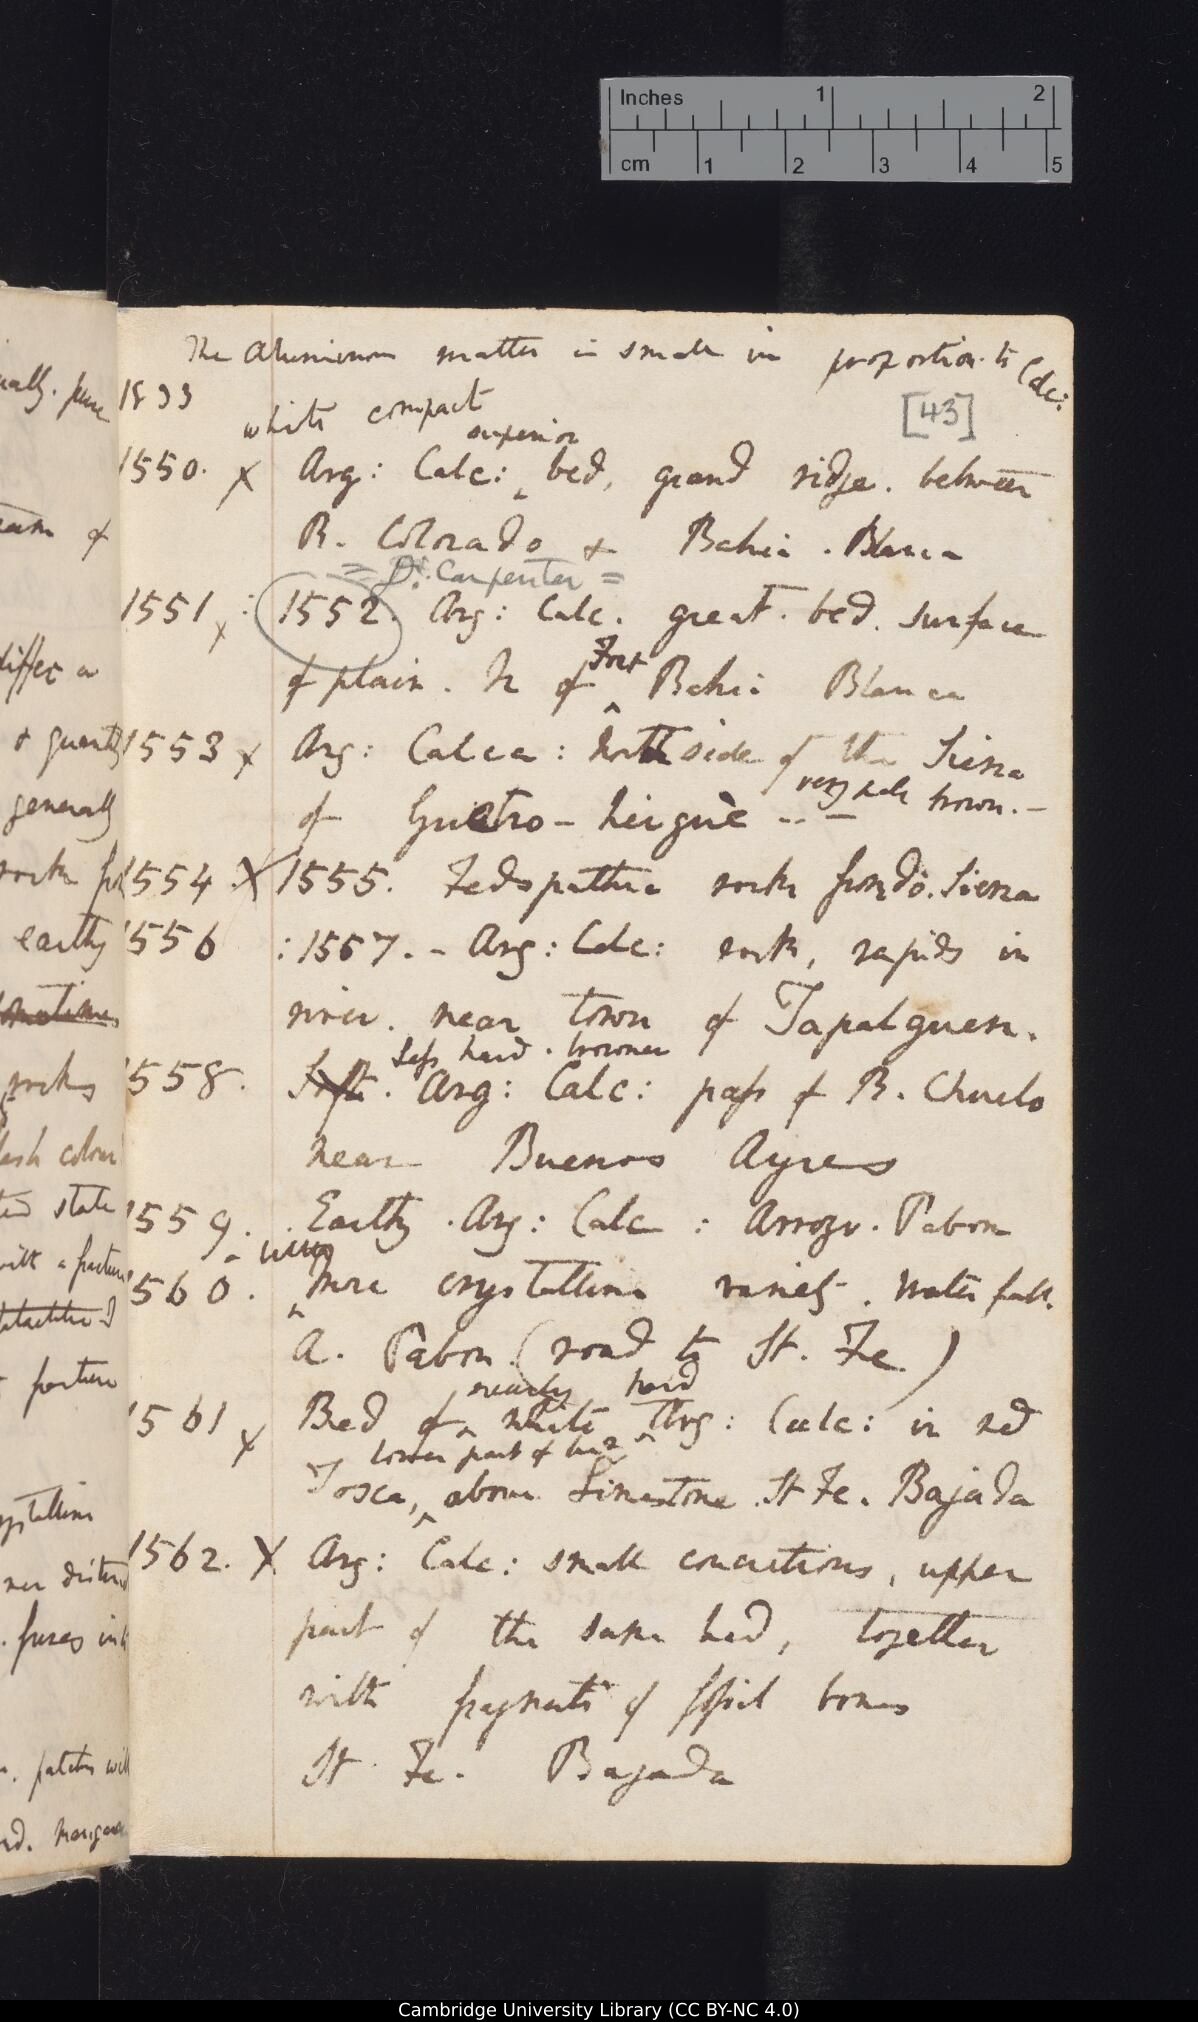 Inches 1 2
cm 1 2 3 4 5
The aluminous matter is small in proportion to Calc:
1833
white compact
[43]
superior
1550. x Arg: Calc: ^ bed, grand ridge. between
R. Colorado + Bahia. Blanca
= Dr. Carpenter =
1551 x : 1552. Arg: Calc. great. bed. surface
Fort
of plain. N of ^ Bahia Blanca
1553 x Arg: Calca: North side of the Sierra
very pale brown. -
of Guetro-heigue -- -
1554 .X 1555. Fedspathic rock from do. Sierra
1556 : 1557. - Arg: Calc: rock, rapids in
river. near town of Tapalguen.
Less hard. browner
1558. Soft. Arg: Calc: pass of R. Chuelo
near Buenos Ayres
1559. . Earthy. Arg: Calc: Arroyo. Pabon
- very
1560. ^ more crystalline variety. Water fall.
A. Pabon. (road to St. Fe)
nearly hard
1561 x Bed of ^ white ^ Arg: Calc: in red
lower part of bed
Tosca, ^ above Limestone. St Fe. Bajada
1562. X Arg: Calc: small concretions, upper
part of the same bed, together
with fragments of fossil bones
St. Fe. Bajada
ually. pure
of
differ in
+ quartz
generally
rocks
earthy
sometimes
rocks
flesh colour
state
with a fracture
fracture
crystalline
. fuses into
. patches with
Cambridge University Library (CC BY-NC 4.0)